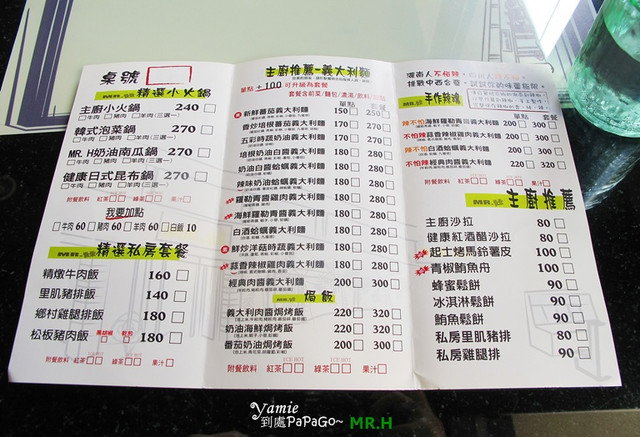 桌號
MR.H 精選小火鍋
主廚小火鍋 240
□牛肉 □豬肉 □羊肉(三選一)
韓式泡菜鍋 270
□牛肉 □豬肉 □羊肉(三選一)
MR. H奶油南瓜鍋 270
□牛肉 □豬肉 □羊肉(三選一)
健康日式昆布鍋 270
□牛肉 □豬肉 □羊肉(三選一)
附餐飲料 紅茶□□ 綠茶□□ 果汁□
我要加點
□牛肉 60 □豬肉 60 □羊肉 60 □白飯 10
MR.H 精選私房套餐
精燉牛肉飯 160
里肌豬排飯 140
鄉村雞腿排飯 180
松板豬肉飯 180
附餐飲料 紅茶□□ 綠茶□□ 果汁□
主廚推薦-義大利麵
單點 +100 可升級為套餐
套餐含前菜/麵包/濃湯/飲料/甜點
單點 套餐
新鮮蕃茄義大利麵 150 250
香炒培根蕃茄義大利麵 170 270
五彩時蔬奶油義大利麵 170 270
培根奶油白醬義大利麵 180 280
奶油白醬蛤蠣義大利麵 180 280
辣味奶油蛤蠣義大利麵 180 280
羅勒青醬雞肉義大利麵 180 280
海鮮羅勒青醬義大利麵 180 280
白酒蛤蠣義大利麵 180 280
鮮炒洋菇時蔬義大利麵 180 280
蒜香辣椒雞肉義大利麵 180 280
經典肉醬義大利麵 200 300
MR.H 焗飯
義大利肉醬焗烤飯 220 320
奶油海鮮焗烤飯 220 320
番茄奶油焗烤飯 200 300
附餐飲料 紅茶□□ 綠茶□□ 果汁□
湖南人不怕辣
挑戰中西合璧
MR.H 手作辣魂
單點 套餐
辣不怕海鮮義大利麵 200 300
不怕辣蒜香辣椒雞肉義大利麵 200 300
辣不怕白酒蛤蠣義大利麵 200 300
不怕辣經典肉醬義大利麵 220 320
附餐飲料 紅茶□□ 綠茶□□ 果汁□
MR.H 主廚推薦
主廚沙拉 80
健康紅酒醋沙拉 80
起士烤馬鈴薯皮 100
青椒鮪魚舟 100
蜂蜜鬆餅 90
冰淇淋鬆餅 90
鮪魚鬆餅 90
私房里肌豬排 80
私房雞腿排 90
Yamie
到處PaPaGo~ MR.H